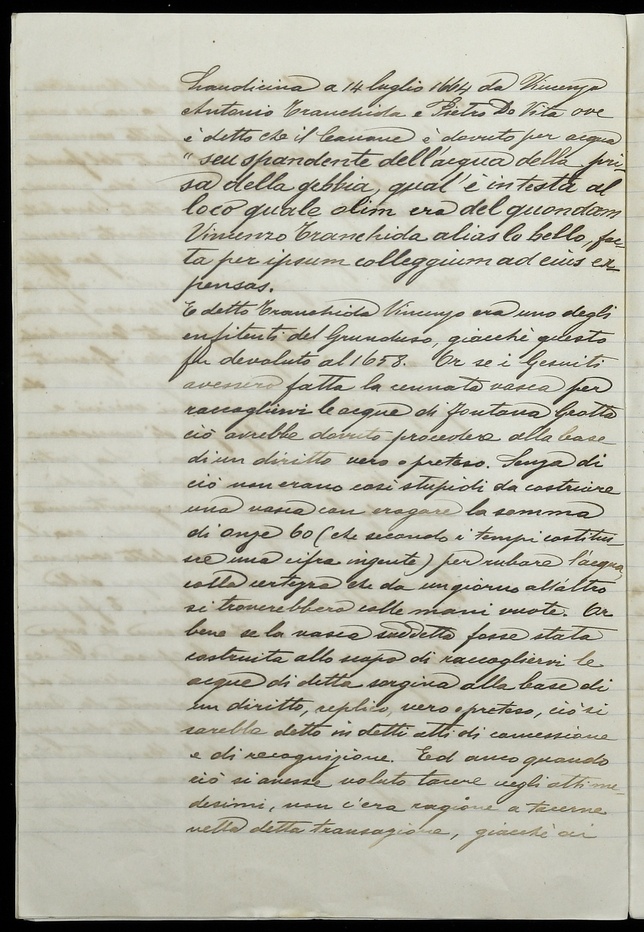 a 14 luglio 1664 da Vincenzo
Antonio Tranchida e Pietro Do Vita ove
è detto che il Canone è dovuto per acqua
" seu spandente dell'acqua della pri-
sa della gebbia, qual'è in testa al
loco quale olim era del quondam
Vincenzo Tranchida alias lo bello, fac-
ta per ipsum colleggium ad eius ex-
pensas.
E detto Tranchida Vincenzo era uno degli
enfiteuti del giacchè questo
fu devoluto al 1658. Or se i Gesuiti
avessero fatta la cennata vasca per
raccogliervi le acque di Fontana Grotta
ciò avrebbe dovuto procedere alla base
di un diritto vero o preteso. Senza di
ciò non erano così stupidi da costruire
una vasca con erogare la somma
di onze 60 (che secondo i tempi costitui-
va una cifra ingente) per rubare l'acqua
colla certezza che da un giorno all'altro
si troverebbero colle mani vuote. Or
bene se la vasca suddetta fosse stata
costruita allo scopo di raccogliervi le
acque di detta sorgiva alla base di
un diritto, replico, vero o preteso, ciò si
sarebbe detto in detti atti di concessione
e di recognizione. Ed anco quando
ciò si avesse voluto tacere negli atti me-
desimi, non c'era ragione a tacerne
nella detta transazione, giacchè ai